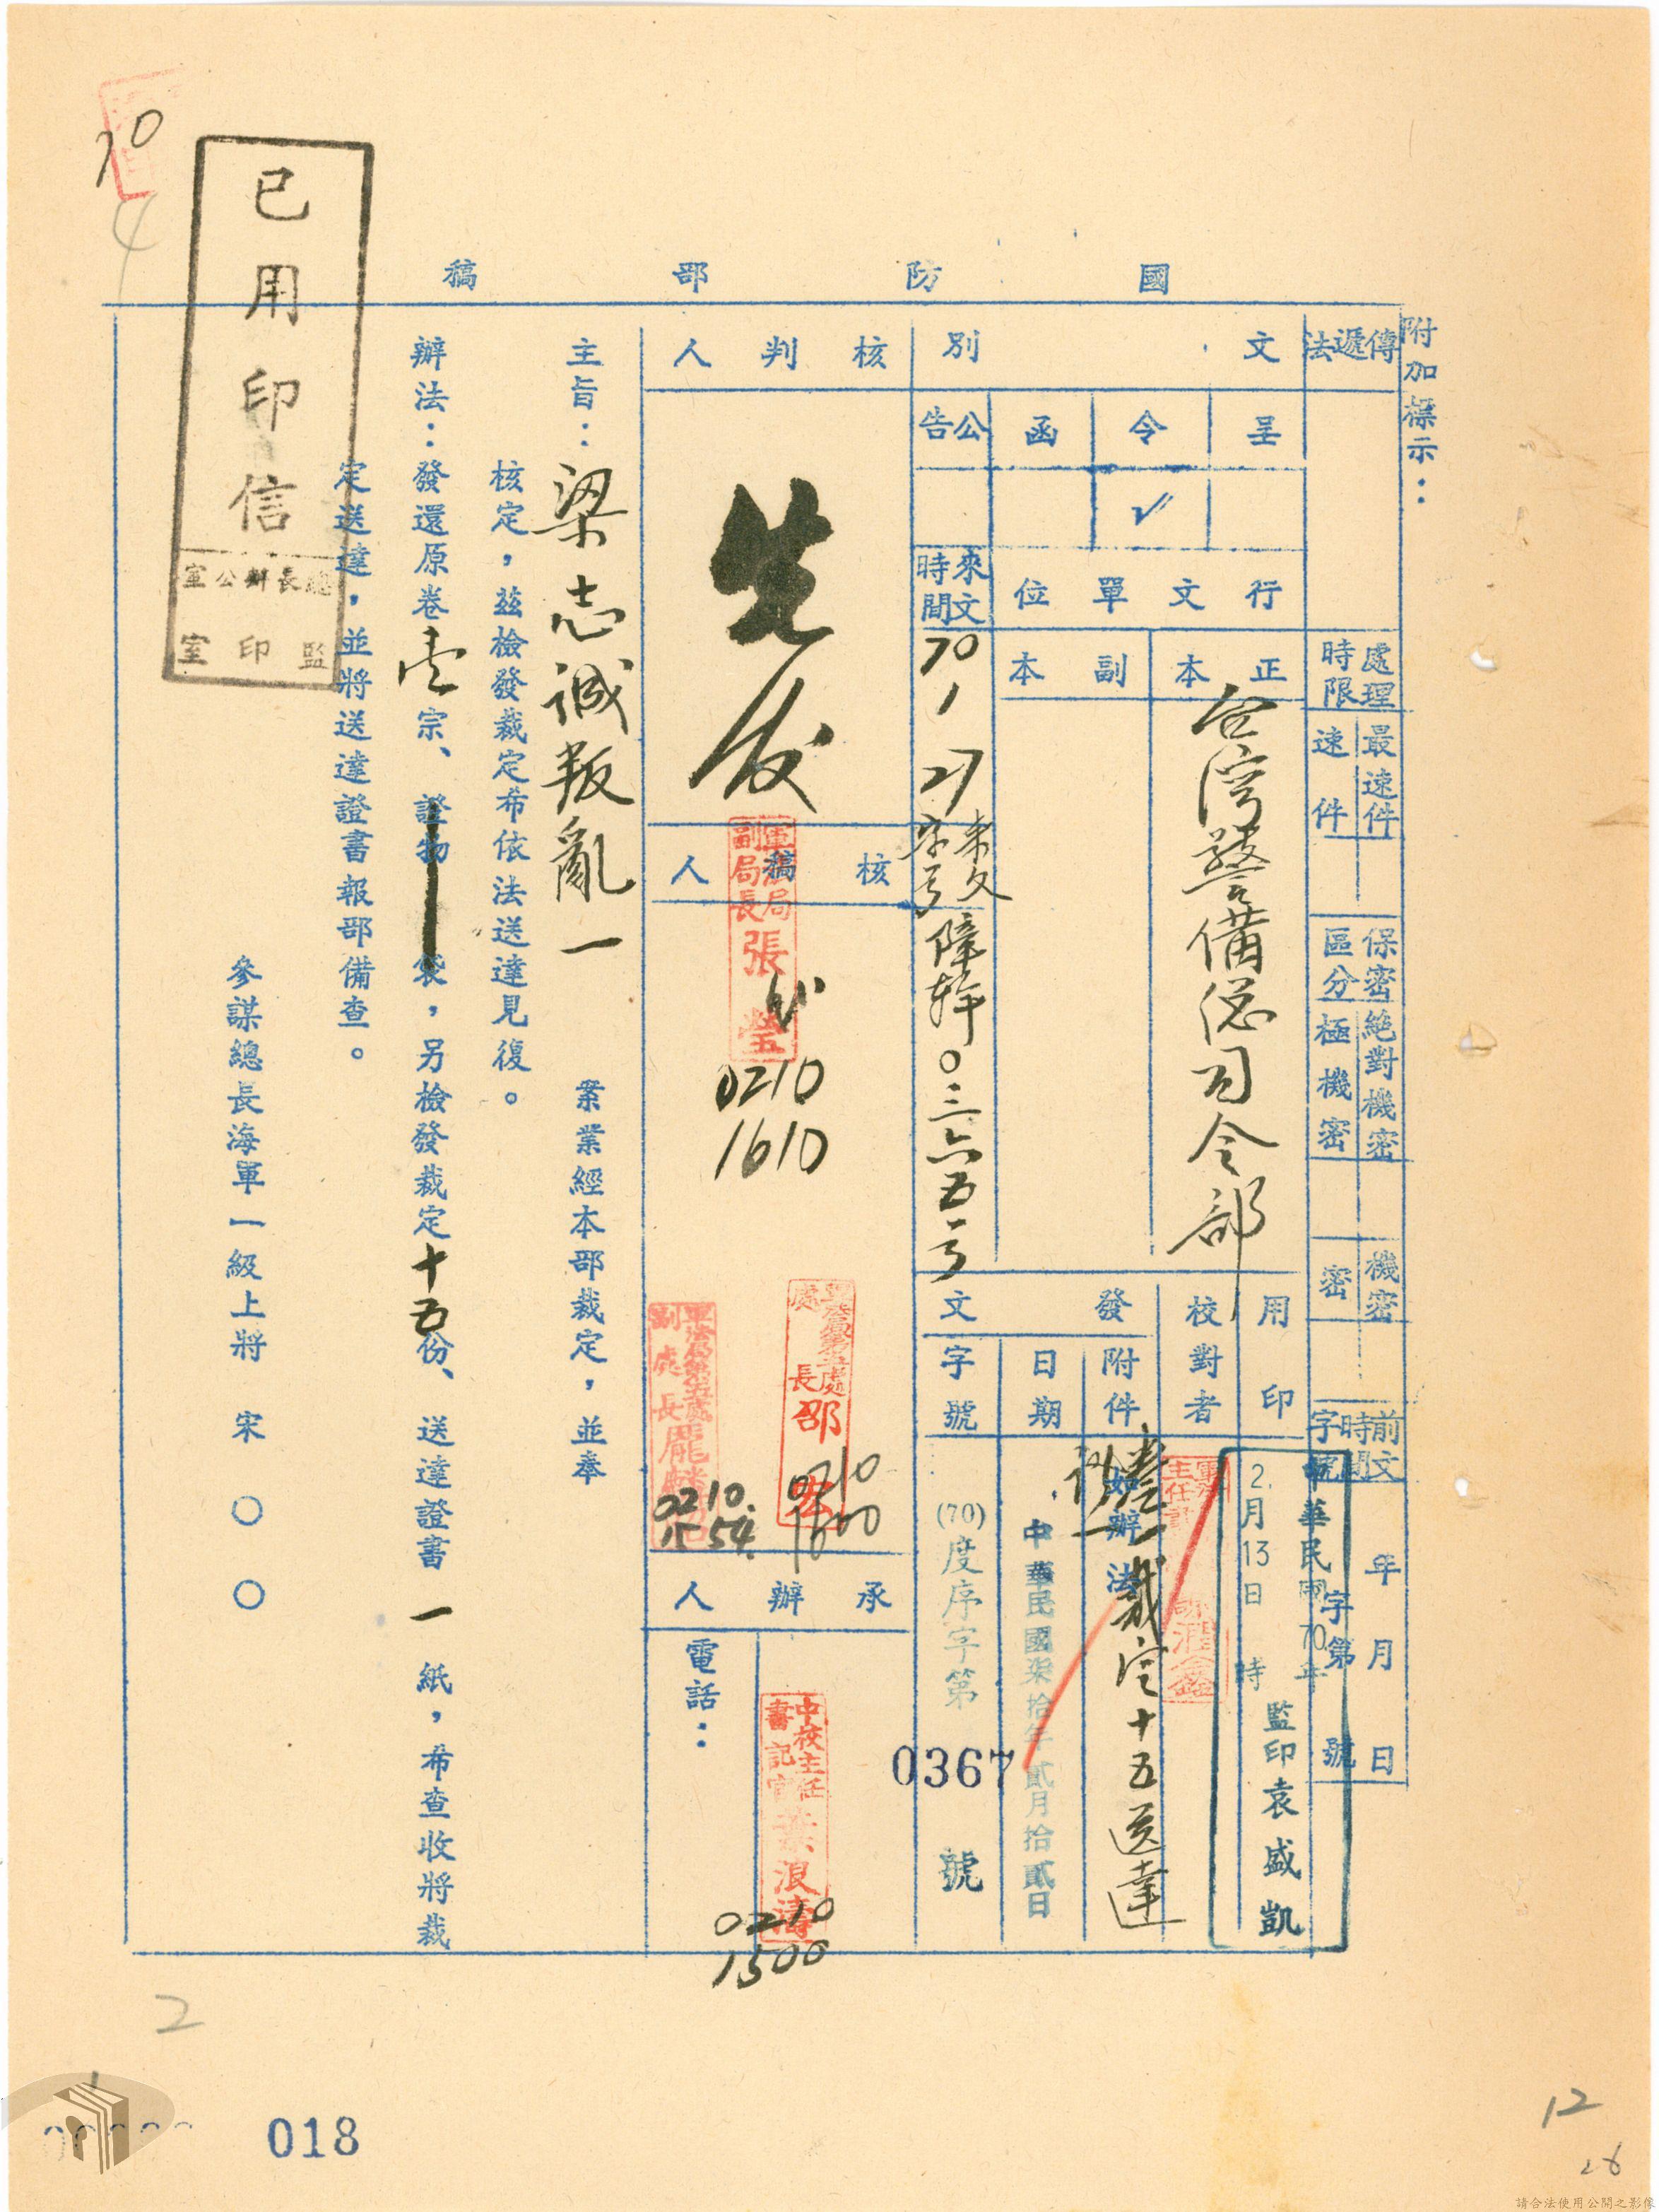 附加標示：
國防部稿
傳遞法
處理時限
最速件
速件
保密區分
絕對機密
極機密
機密
密
前文時間字號
年月日
字第號
文別
呈
令
函
公告
✓
行文單位
正本
副本
台灣警備總司令部
來文時間
70 1 27
來文字號
障幹0三六五号
用印
中華民國70年
2月13日 時
監印袁盛凱
校對者
發文
附件
如辦法
裁定十五送達
日期
中華民國柒拾年貳月拾貳日
字號
(70)度序字第0367號
核判人
先發
核稿人
軍法局副局長張瑩
0210
1610
軍法局第五處處長邵
0210
1600
軍法局第五處副處長龐
0210
1554
承辦人
中校主任書記官葉浪濤
0210
1500
電話：
主旨：梁志誠叛亂一案業經本部裁定，並奉
核定，茲檢發裁定希依法送達見復。
辦法：發還原卷壹宗、證物袋，另檢發裁定十五份、送達證書一紙，希查收將裁
定送達，並將送達證書報部備查。
參謀總長海軍一級上將宋〇〇
已用印信
總長辦公室
監印室
70
4
2
018
12
26
請合法使用公開之影像